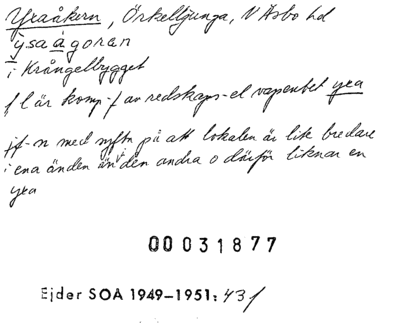 Yxaåkern, Örkelljunga, N Åsbo hd
ỳsaågoran
i Krångelbygget
f l är komp-f av redskaps-el vapenbet yxa
jf-n med syftn på att lokalen är lite bredare
i ena änden än den andra o därför liknar en
yxa
00031877
Ejder SOA 1949-1951: 431